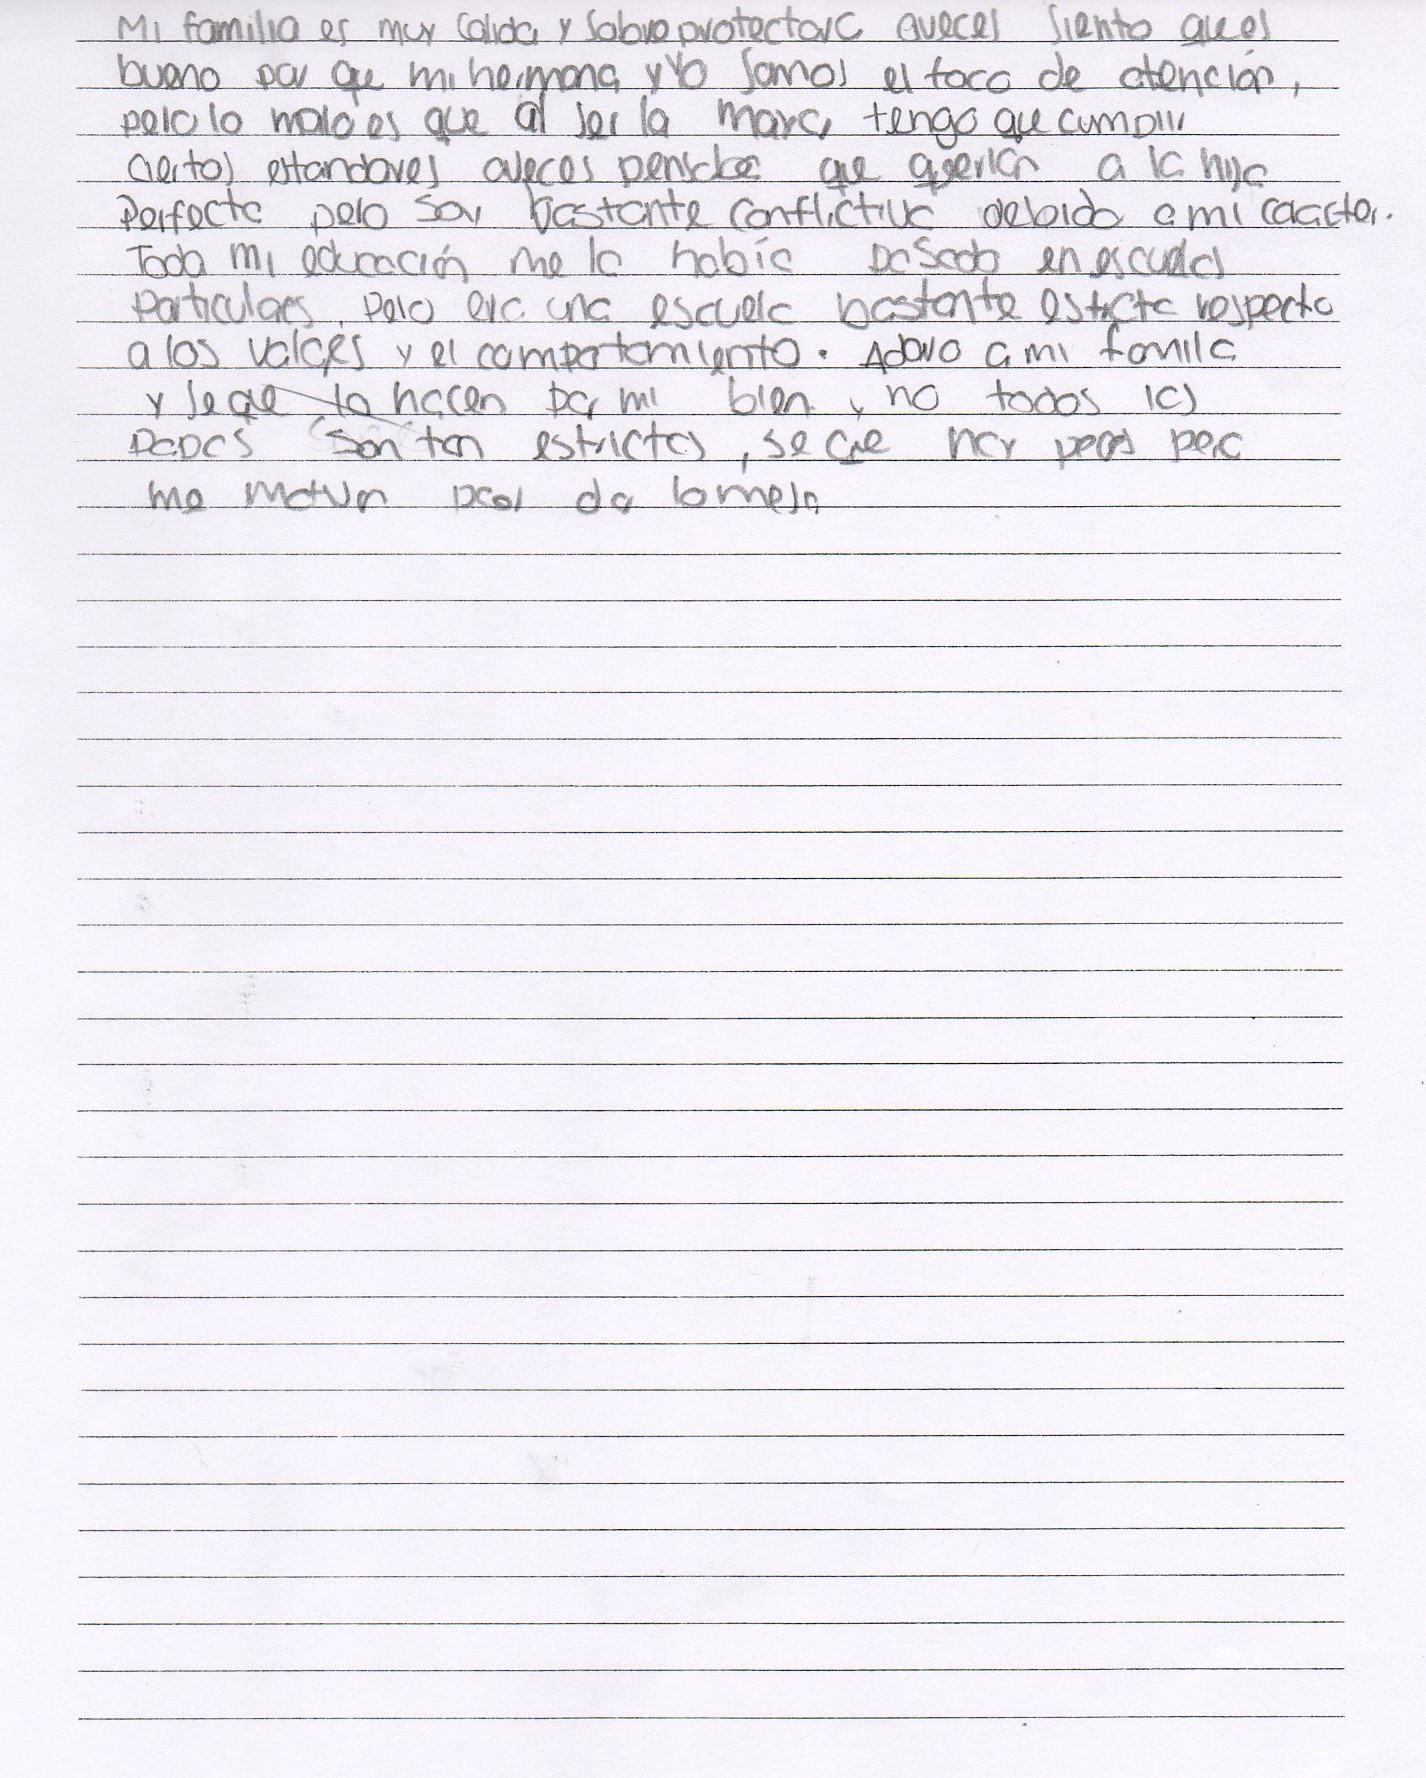 Mi familia es muy calida y sobreprotectora aveces siento que es
bueno por que mi hermana y yo somos el foco de atención,
pero lo malo es que al ser la mayor tengo que cumplir
ciertos estandares aveces pensaba que querian a la hija
Perfecta pero soy bastante conflictiva debido a mi caracter.
Toda mi educación me la había pasado en escuelas
Particulares, pero era una escuela bastante estricta respecto
a los valores y el comportamiento. Adoro a mi familia
y se que lo hacen por mi bien, no todos los
papas son tan estrictos, se que hay peros pero
me motivan por dar lo mejor